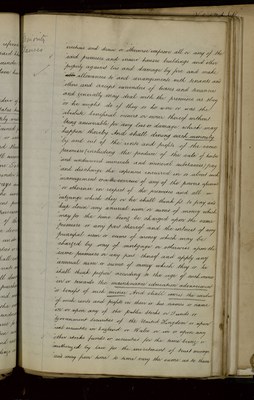 contain and demise or otherwise improve all or any of the
said premises and insure houses buildings and other
property against loss and damage by fire and make
allowances to and arrangements with tenants and
others and accept surrenders of leases and tenancies
and generally may deal with the premises as they
or he might do if they or he were or was the
absolute beneficial owners or owner thereof without
being answerable for any loss or damage which may
happen thereby And shall during such minority
by and out of the rents and profits of the same
premises including the produce of the sale of timber
and underwood minerals and mineral substances pay
and discharge the expenses incurred in or about such
management or in the exercise of any of the powers aforesaid
or otherwise in respect of the premises and all
outgoings which they or he shall think fit to pay and
keep down any annual sum or sums of money which
may for the time being be charged upon the same
premises or any part thereof and the interest of any
principal sum or sums of money which may be
charged by way of mortgage or otherwise upon the
same premises or any part thereof and apply any
annual sum or sums of money which they or he
shall think proper according to the age of such minor
in or towards the maintenance education advancement
or benefit of such minor And shall invest the residue
of such rents and profits in their or his names or name
in or upon any of the public Stocks or Funds or
Government Securities of the United Kingdom or upon
real securities in England or Wales or in or upon any
other stocks funds or securities for the time being
authorized by law for the investment of trust moneys
and may from time to time vary the same as to them